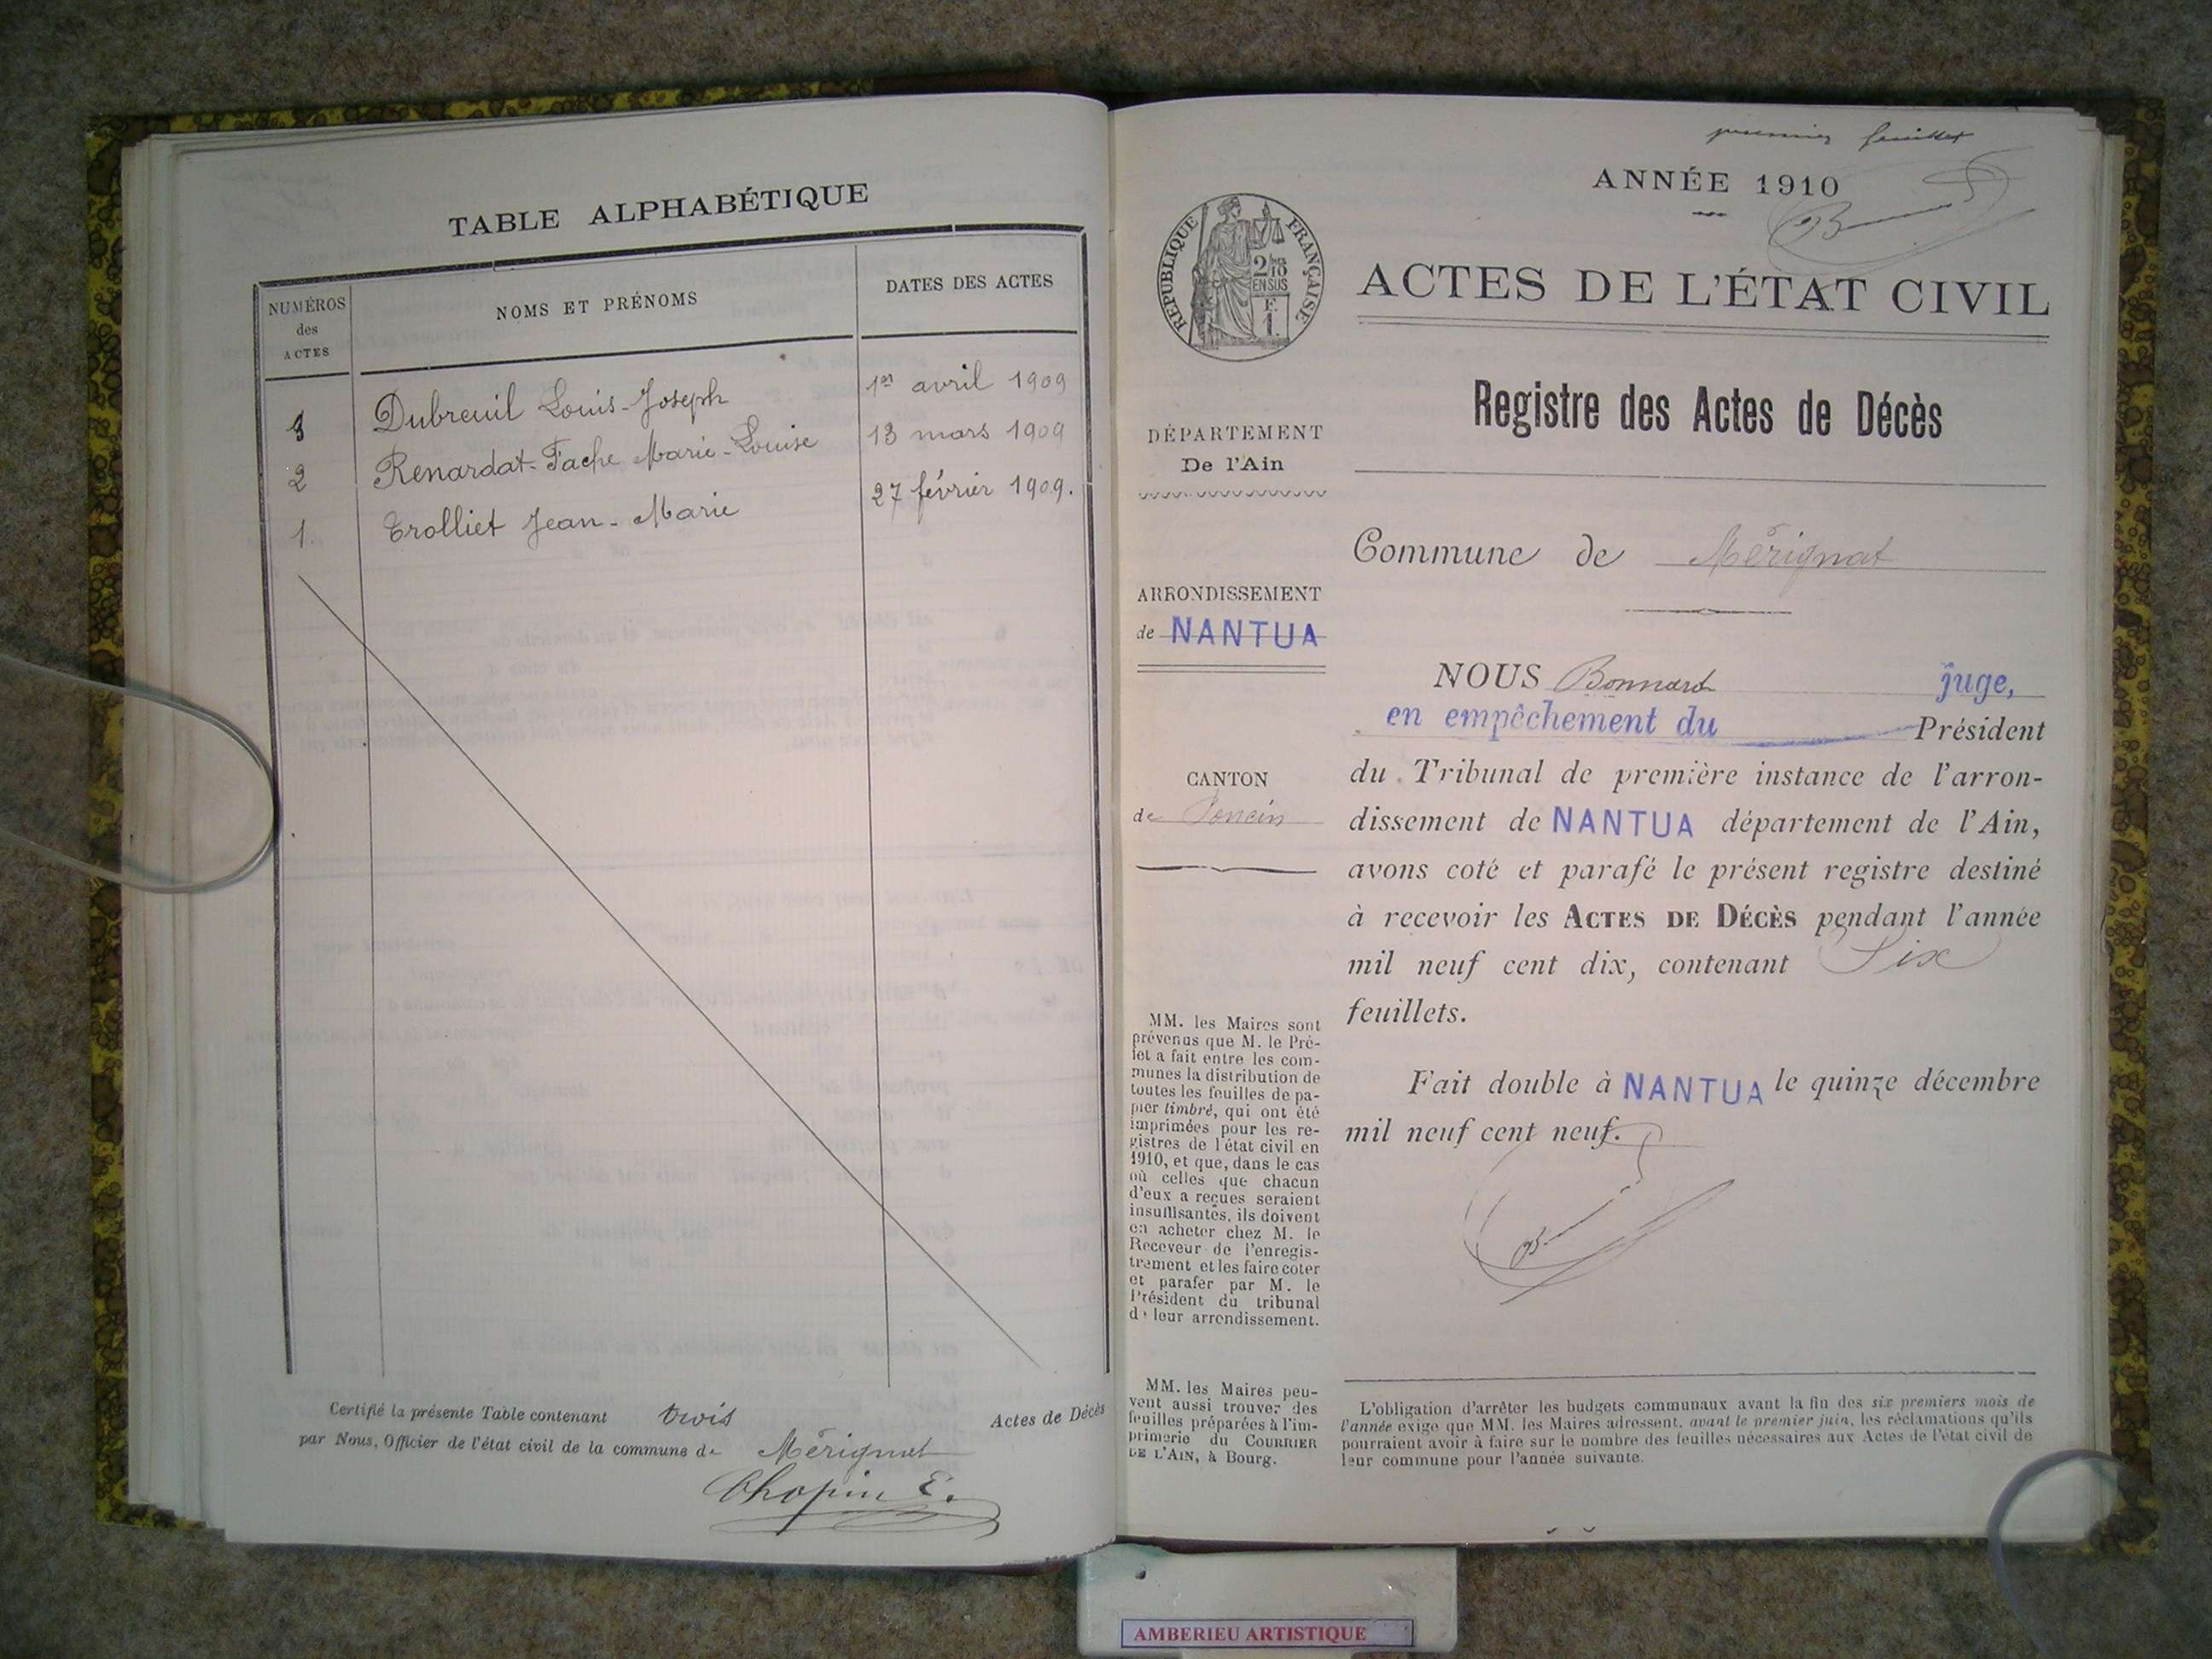 TABLE ALPHABÉTIQUE
NUMÉROS
des
ACTES
NOMS ET PRÉNOMS
DATES DES ACTES
3 Dubreuil Louis-Joseph 1er avril 1909
2 Renardat-Fache Marie-Louise 13 mars 1909
1. Trolliet Jean-Marie 27 février 1909.
Certifié la présente Table contenant trois Actes de Décès
par Nous, Officier de l'état civil de la commune de Mérignat
Chopin E.
premier feuillet
ANNÉE 1910
RÉPUBLIQUE FRANÇAISE
2/10
EN SUS
F
1.
ACTES DE L'ÉTAT CIVIL
Registre des Actes de Décès
DÉPARTEMENT
De l'Ain
Commune de Mérignat
ARRONDISSEMENT
de NANTUA
CANTON
de Poncin
NOUS Bonnard juge,
en empêchement du Président
du Tribunal de première instance de l'arron-
dissement de NANTUA département de l'Ain,
avons coté et parafé le présent registre destiné
à recevoir les ACTES DE DÉCÈS pendant l'année
mil neuf cent dix, contenant Six
feuillets.
Fait double à NANTUA le quinze décembre
mil neuf cent neuf.
MM. les Maires sont
prévenus que M. le Pré-
fet a fait entre les com-
munes la distribution de
toutes les feuilles de pa-
pier timbré, qui ont été
imprimées pour les re-
gistres de l'état civil en
1910, et que, dans le cas
où celles que chacun
d'eux a reçues seraient
insuffisantes, ils doivent
en acheter chez M. le
Receveur de l'enregis-
trement et les faire coter
et parafer par M. le
Président du tribunal
de leur arrondissement.
MM. les Maires peu-
vent aussi trouver des
feuilles préparées à l'im-
primerie du COURRIER
DE L'AIN, à Bourg.
L'obligation d'arrêter les budgets communaux avant la fin des six premiers mois de
l'année exige que MM. les Maires adressent, avant le premier juin, les réclamations qu'ils
pourraient avoir à faire sur le nombre des feuilles nécessaires aux Actes de l'état civil de
leur commune pour l'année suivante.
AMBERIEU ARTISTIQUE